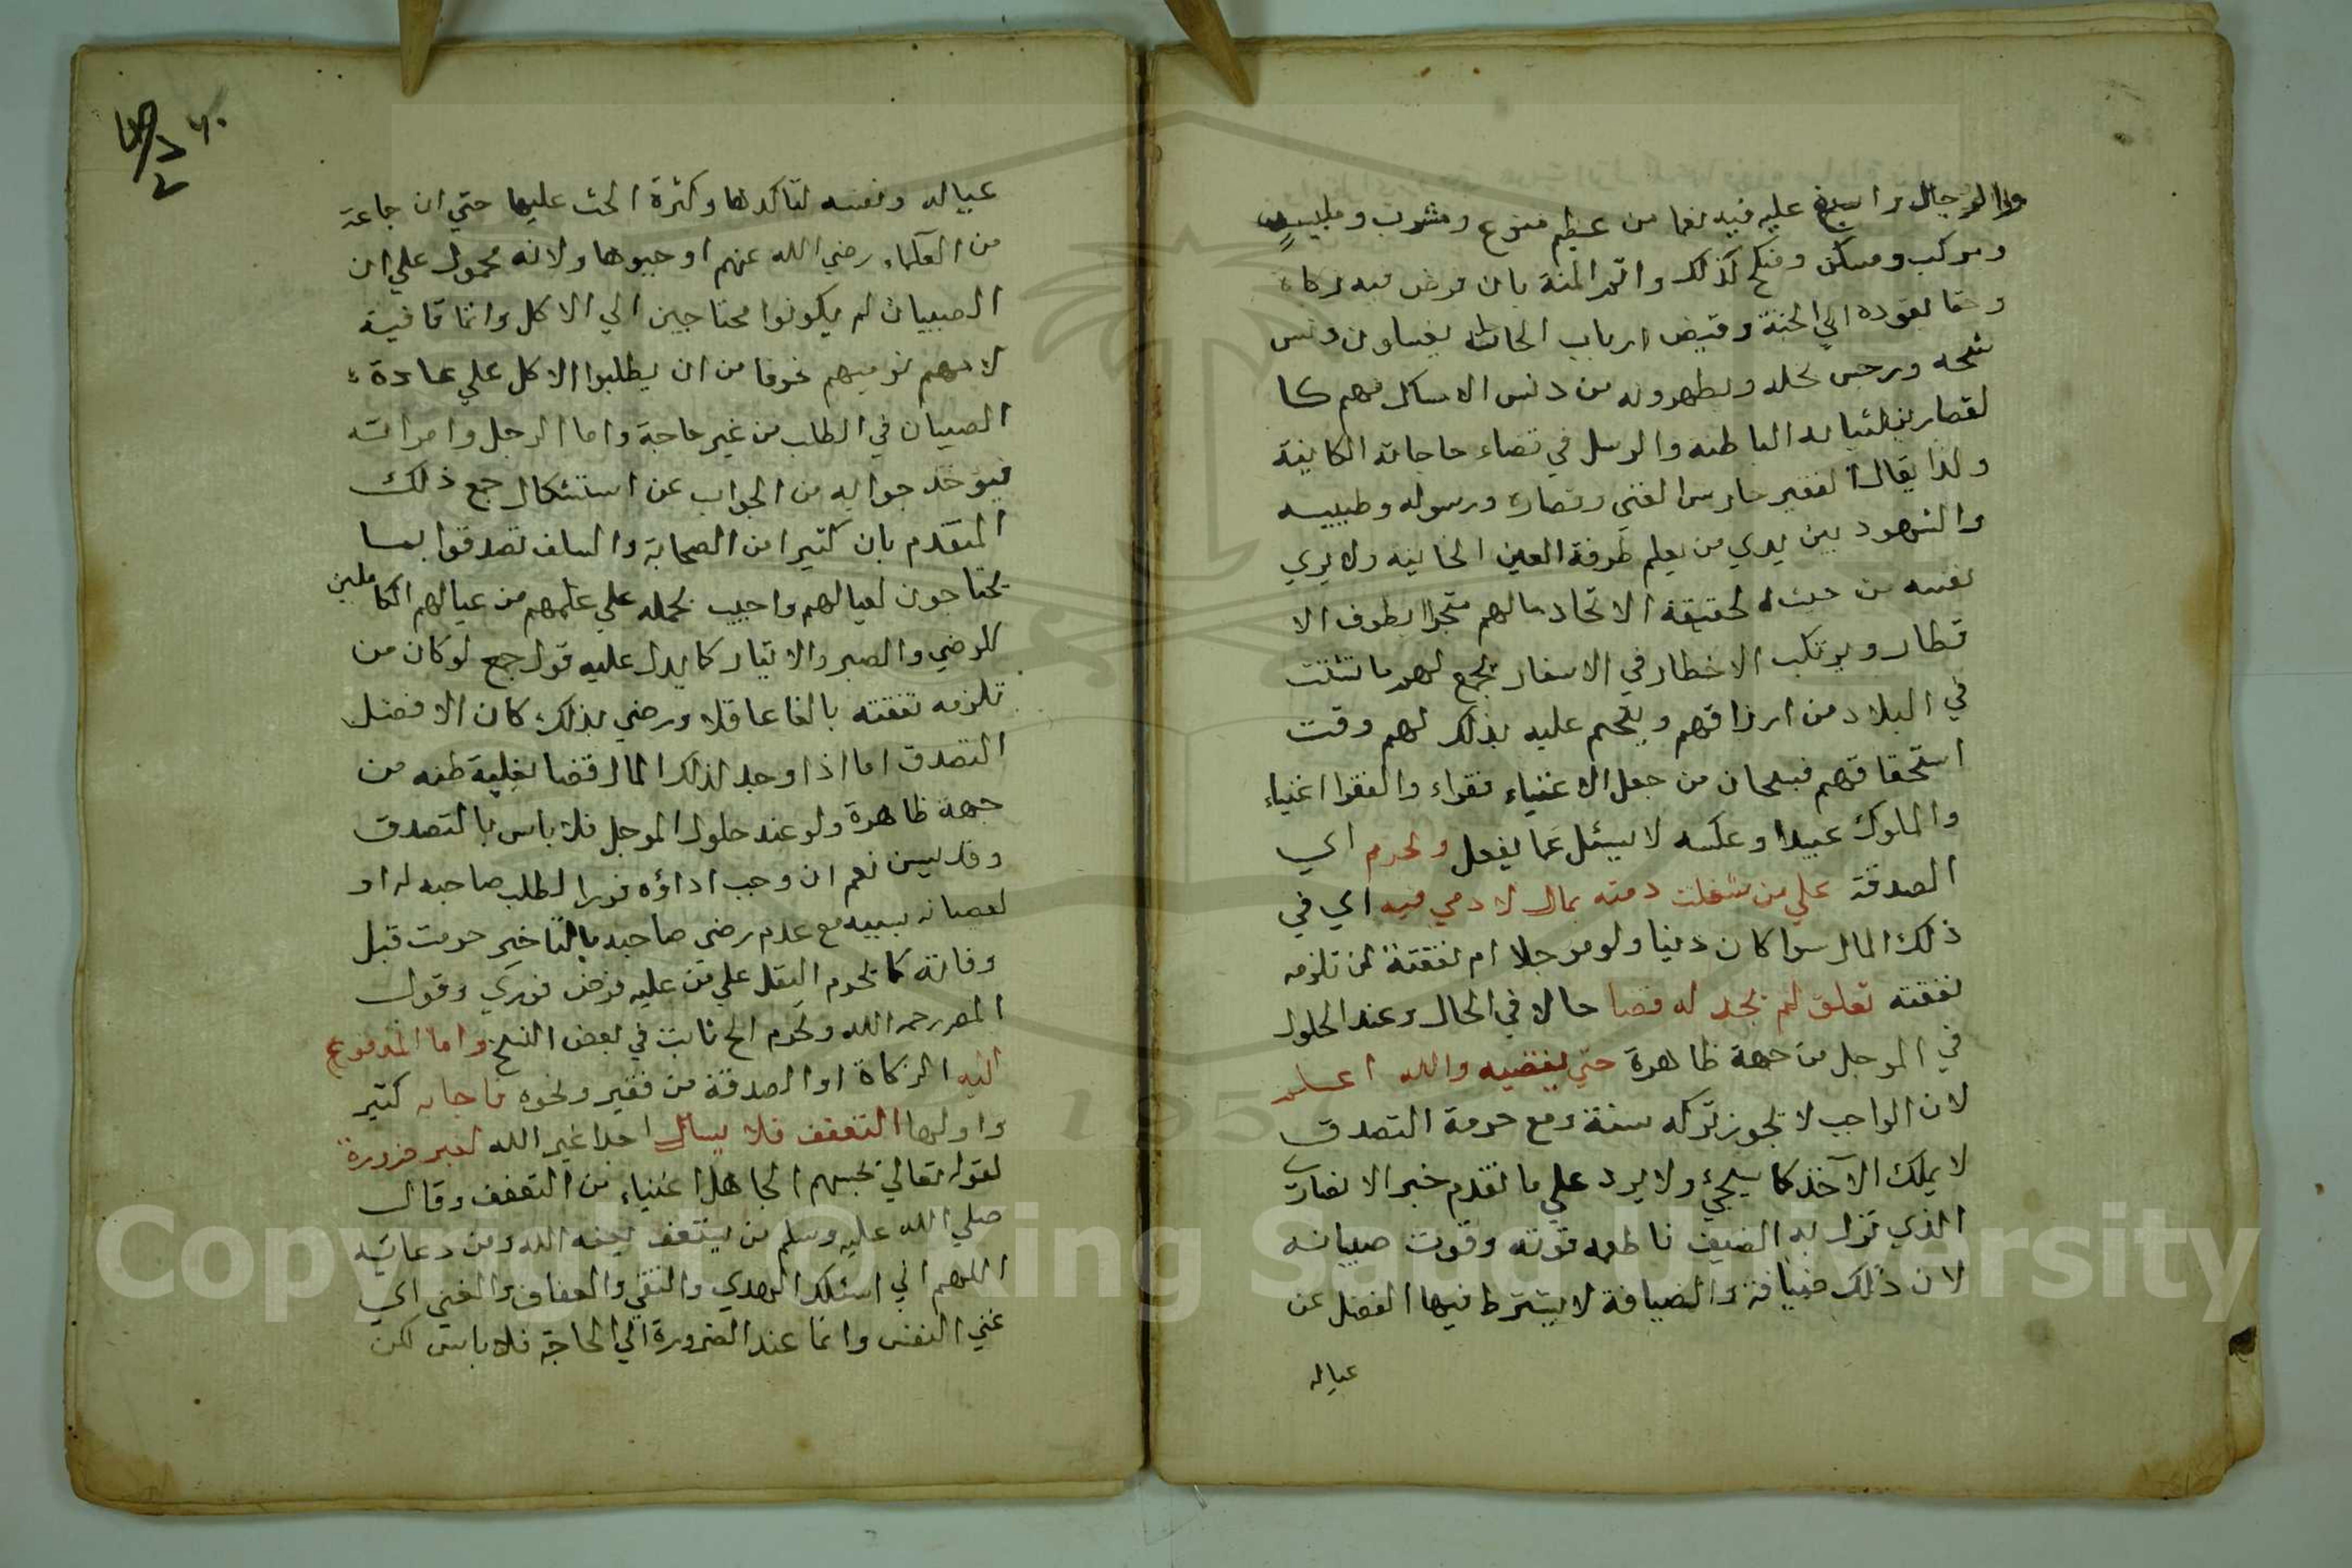 والرجال واسبغ عليه فيه نعما من عظيم منوع ومشرب وملبس
ومركب ومسكن ومنكح كذلك واتم المنة بان فرض فيه زكاة
وحقا يقوده الي الجنة وقيض ارباب الحاجة يغسلون دنس
شحه ورجس بخله ويطهرونه من دنس الامساك فهم كا
لقصارين لثيابه الباطنه والرسل في قضاء حاجاته الكاينة
ولذا يقال الفقير حارس الغني وقصاره ورسوله وطبيبه
والشهود بين يدي من يعلم طرفة العين الخاينه ولا يري
نفسه من حيث الحقيقة الاتحاد مالهم متجرا يطوف الا
قطار ويرتكب الاخطار في الاسفار يجمع لهم ما تشتت
في البلاد من ارزاقهم ويحم عليه بذلك لهم وقت
استحقاقهم فسبحان من جعل الاغنياء فقراء والفقرا اغنياء
والملوك عبيدا وعكسه لا يسئل عما يفعل وتحرم اي
الصدقة علي من شغلت ذمته بمال لادمي فيه اي في
ذلك المال سوا كان دينا ولو موجلا ام نفقتة لمن تلزمه
نفقته تعلق لم يجد له قضا حالا في الحال وعند الحلول
في الموجل من جهة ظاهرة حتي يقضيه والله اعلم
لان الواجب لا يجوز تركه سنة ومع حرمة التصدق
لا يملك الآخذ كما سيجيء ولا يرد علي ما تقدم خبر الانصاري
الذي نزل به الضيف فاطعمه قوته وقوت صبيانه
لان ذلك ضيافة والضيافة لا يشترط فيها الفضل عن
عياله
عياله ونفسه لتاكدها وكثرة الحث عليها حتي ان جماعة
من العلماء رضي الله عنهم اوجبوها ولانه محمول علي ان
الصبيان لم يكونوا محتاجين الي الاكل وانما قال فيه
لامهم نوميهم خوفا من ان يطلبوا الاكل علي عادة
الصبيان في الطلب من غير حاجة واما الرجل وامراته
فيوخذ جوابه من الجواب عن استشكال جمع ذلك
المتقدم بان كثيرا من الصحابة والسلف تصدقوا بما
يحتاجون لعيالهم واجيب بحمله علي علمهم من عيالهم الكاملين
للرضي والصبر والايثار كما يدل عليه قول جمع لو كان من
تلزمه نفقته بالغا عاقلا ورضي بذلك كان الافضل
التصدق اما اذا وجد لذلك المال قضا بغلبة ظنه من
جهة ظاهرة ولو عند حلول الموجل فلا باس بالتصدق
وقد يسن نعم ان وجب اداؤه فورا لطلب صاحبه له او
لعصيانه بسببه مع عدم رضي صاحبه بالتاخير حرمت قبل
وفائه كما تحرم النفل علي من عليه فرض فوري وقول
المص رحمه الله وتحرم الخ ثابت في بعض النسخ واما المدفوع
اليه الزكاة او الصدقة من فقير ونحوه فاجابه كثير
واولها التعفف فلا يسال احدا غير الله لغير ضرورة
لقوله تعالي يحسبهم الجاهل اغنياء من التعفف وقال
صلي الله عليه وسلم من يستعفف يعفه الله ومن دعائه
اللهم اني اسئلك الهدي والتقي والعفاف والغني اي
غني النفس وانما عند الضرورة الي الحاجة فلا باس لكن